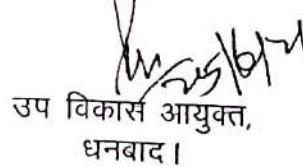 उप विकास आयुक्त,
धनबाद।